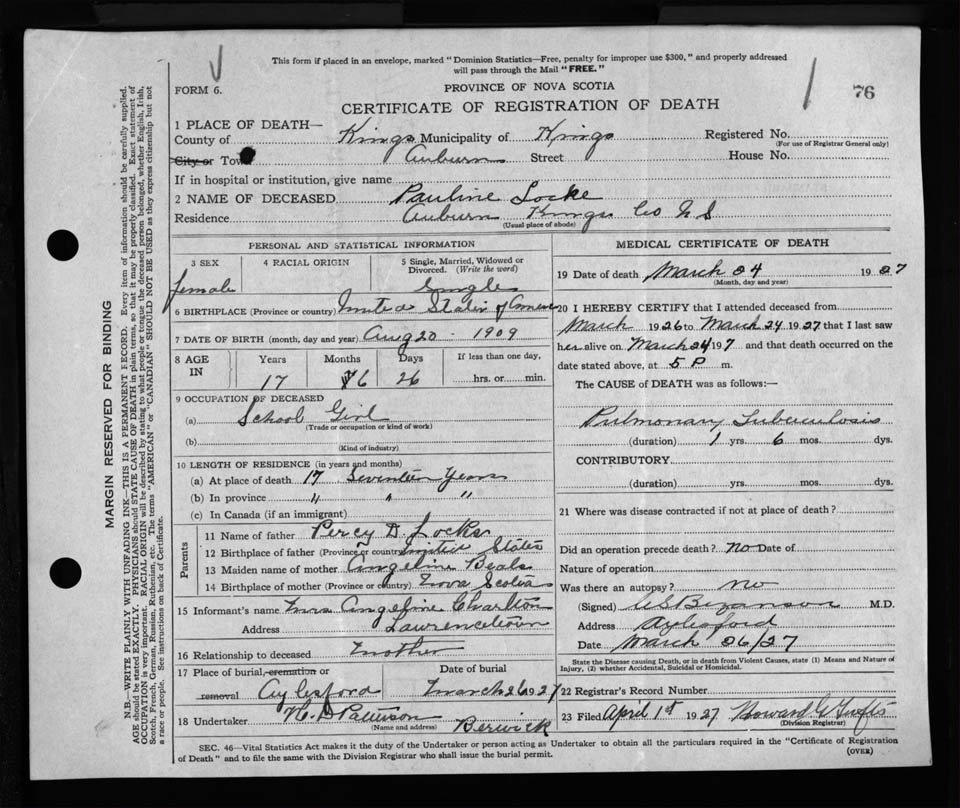 This form if placed in an envelope, marked "Dominion Statistics—Free, penalty for improper use $300," and properly addressed
will pass through the Mail "FREE."
FORM 6.
PROVINCE OF NOVA SCOTIA
76
CERTIFICATE OF REGISTRATION OF DEATH
1 PLACE OF DEATH—
County of Kings Municipality of Kings Registered No.
(For use of Registrar General only)
City or Town Auburn Street House No.
If in hospital or institution, give name
2 NAME OF DECEASED Pauline Locke
Residence Auburn Kings Co N S
(Usual place of abode)
PERSONAL AND STATISTICAL INFORMATION
3 SEX 4 RACIAL ORIGIN 5 Single, Married, Widowed or
Divorced. (Write the word)
female Single
6 BIRTHPLACE (Province or country) United States of
7 DATE OF BIRTH (month, day and year) Aug 20 - 1909
8 AGE IN Years Months Days If less than one day,
17 6 26 hrs. or min.
9 OCCUPATION OF DECEASED
(a) School Girl
(Trade or occupation or kind of work)
(b)
(Kind of industry)
10 LENGTH OF RESIDENCE (in years and months)
(a) At place of death 17 Seventeen Years
(b) In province " " "
(c) In Canada (if an immigrant)
Parents
11 Name of father Percy D. Locke
12 Birthplace of father (Province or country) United States
13 Maiden name of mother Angeline Beals
14 Birthplace of mother (Province or Country) Nova Scotia
15 Informant's name Mrs Angeline Charlton
Address Lawrencetown
16 Relationship to deceased Mother
17 Place of burial, cremation or Date of burial
removal Aylesford March 26 1927
18 Undertaker H. D Patterson Berwick
(Name and address)
MEDICAL CERTIFICATE OF DEATH
19 Date of death March 24 1927
(Month, day and year)
20 I HEREBY CERTIFY that I attended deceased from
March 1926 to March 24 1927 that I last saw
her alive on March 24 19 7 and that death occurred on the
date stated above, at 5 P m.
The CAUSE of DEATH was as follows:—
Pulmonary Tuberculosis
(duration) 1 yrs. 6 mos. dys.
CONTRIBUTORY
(duration) yrs. mos. dys.
21 Where was disease contracted if not at place of death?
Did an operation precede death? no Date of
Nature of operation
Was there an autopsy? no
(Signed) M.D.
Address Aylesford
Date March 26/27
State the Disease causing Death, or in death from Violent Causes, state (1) Means and Nature of
Injury, (2) whether Accidental, Suicidal or Homicidal.
22 Registrar's Record Number
23 Filed April 1st 1927 Howard
(Division Registrar)
SEC. 46—Vital Statistics Act makes it the duty of the Undertaker or person acting as Undertaker to obtain all the particulars required in the "Certificate of Registration
of Death" and to file the same with the Division Registrar who shall issue the burial permit.
(OVER)
MARGIN RESERVED FOR BINDING
N.B.—WRITE PLAINLY WITH UNFADING INK—THIS IS A PERMANENT RECORD. Every item of information should be carefully supplied.
AGE should be stated EXACTLY. PHYSICIANS should STATE CAUSE OF DEATH in plain terms, so that it may be properly classified. Exact statement of
OCCUPATION is very important. RACIAL ORIGIN will be described by stating to what people or tongue the deceased person belonged, whether English, Irish,
Scotch, French, German, Russian, Ruthenian, etc. The terms "AMERICAN" or "CANADIAN" SHOULD NOT BE USED as they express citizenship but not
a race or people. See instructions on back of Certificate.